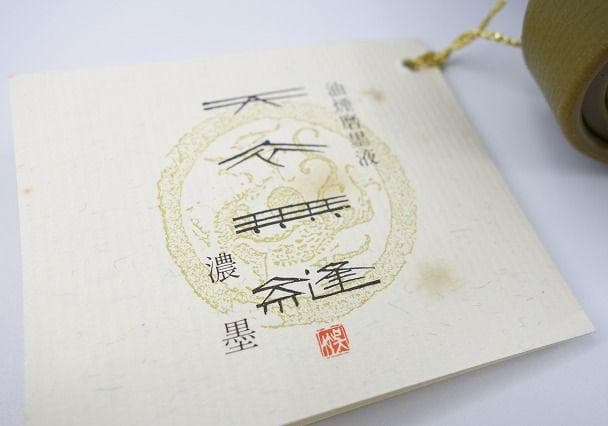 油煙磨墨液
天衣無縫
濃墨
呉竹